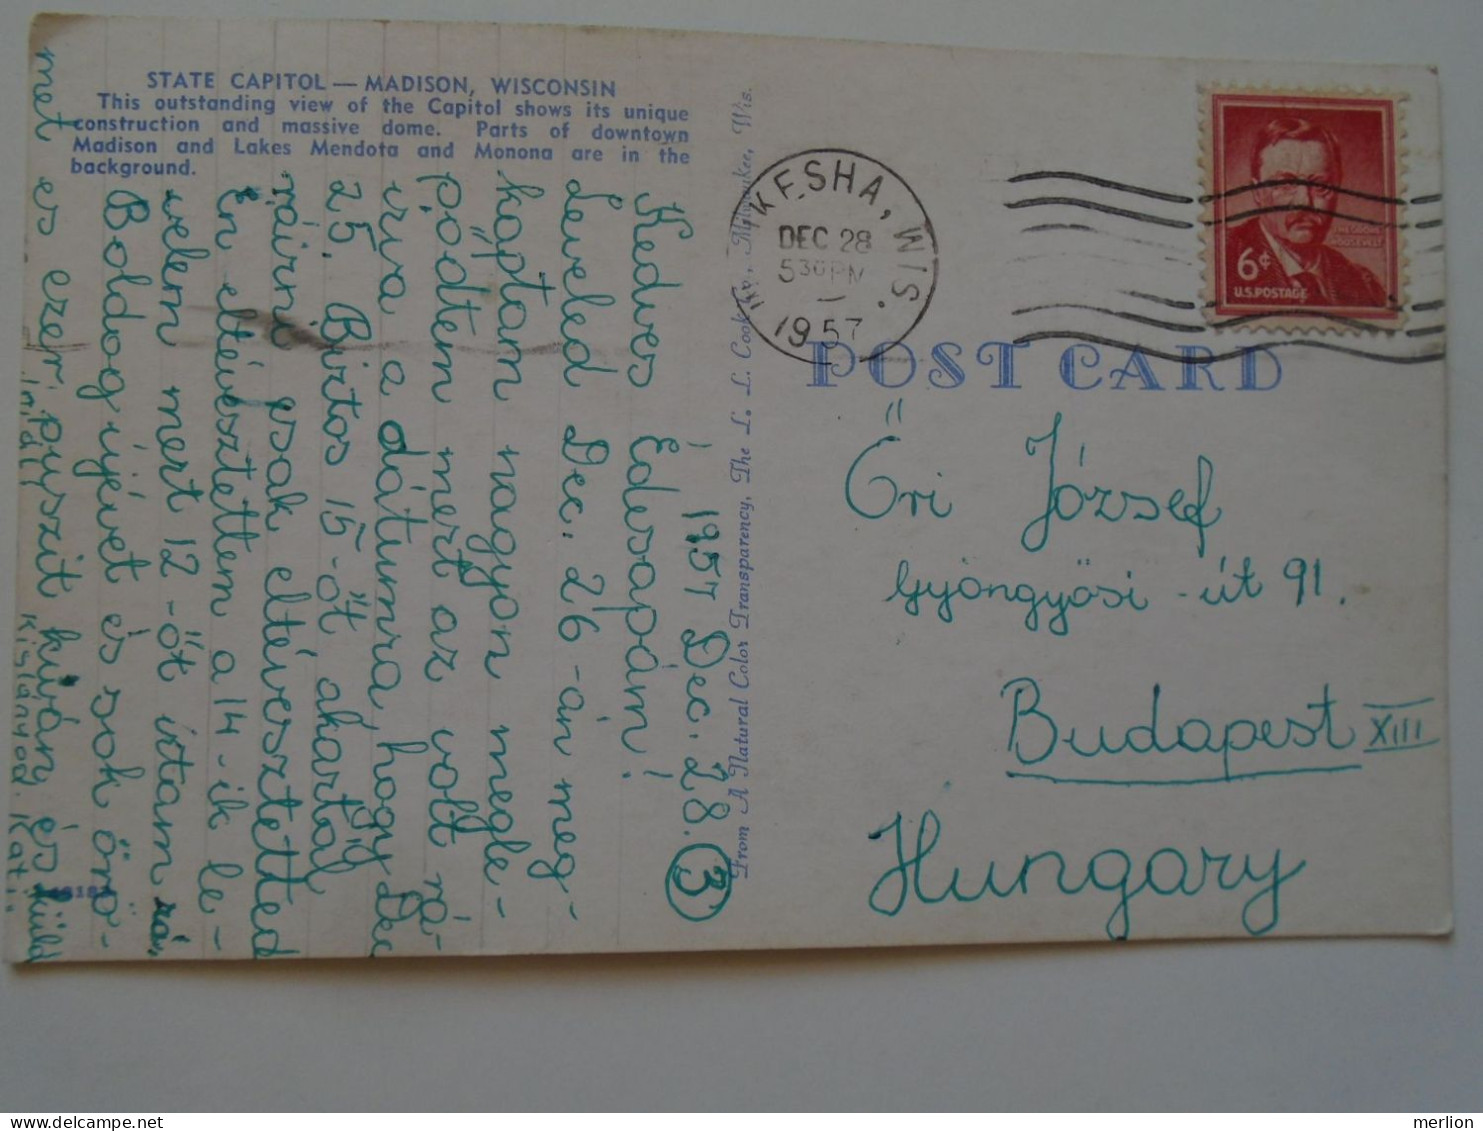 STATE CAPITOL — MADISON, WISCONSIN
This outstanding view of the Capitol shows its unique
construction and massive dome. Parts of downtown
Madison and Lakes Mendota and Monona are in the
background.
1957 Dec. 28. 3
Kedves Édesapám!
Leveled Dec. 26-án meg-
kaptam nagyon megle-
pődtem mert az volt rá-
irva a dátumra, hogy Dec
25. Biztos 15-öt akartál
ráirni csak eltévesztetted
Én eltévesztettem a 14-ik le-
velem mert 12-öt irtam rá,
Boldog újévet és sok örö-
met és ezer puszit kiván és küld
Imádó Kislányod. Kati.
From A Natural Color Transparency, The L. L. Cook Co., Milwaukee, Wis.
KESHA, WIS.
DEC 28
530PM
1957
THEODORE
ROOSEVELT
6¢
U.S. POSTAGE
POST CARD
Őri József
Gyöngyösi-út 91.
Budapest XIII
Hungary
merlion